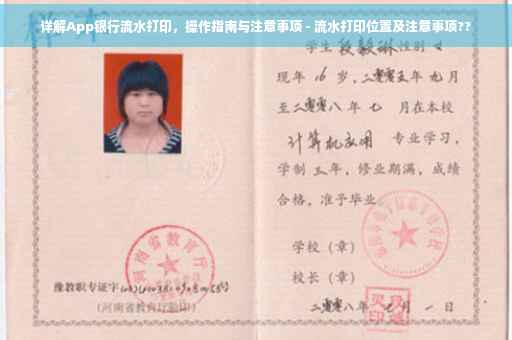 详解App银行流水打印，操作指南与注意事项 - 流水打印位置及注意事项??
学生段毅琳性别女
现年16岁，二零零五年九月
至二零零八年七 月在本校
计算机应用 专业学习，
学制三年，修业期满，成绩
合格，准予毕业
学校（章）
校长（章）
二零零八年七月一日
河南省教育厅
豫教职专证字
(河南省教育厅验印)